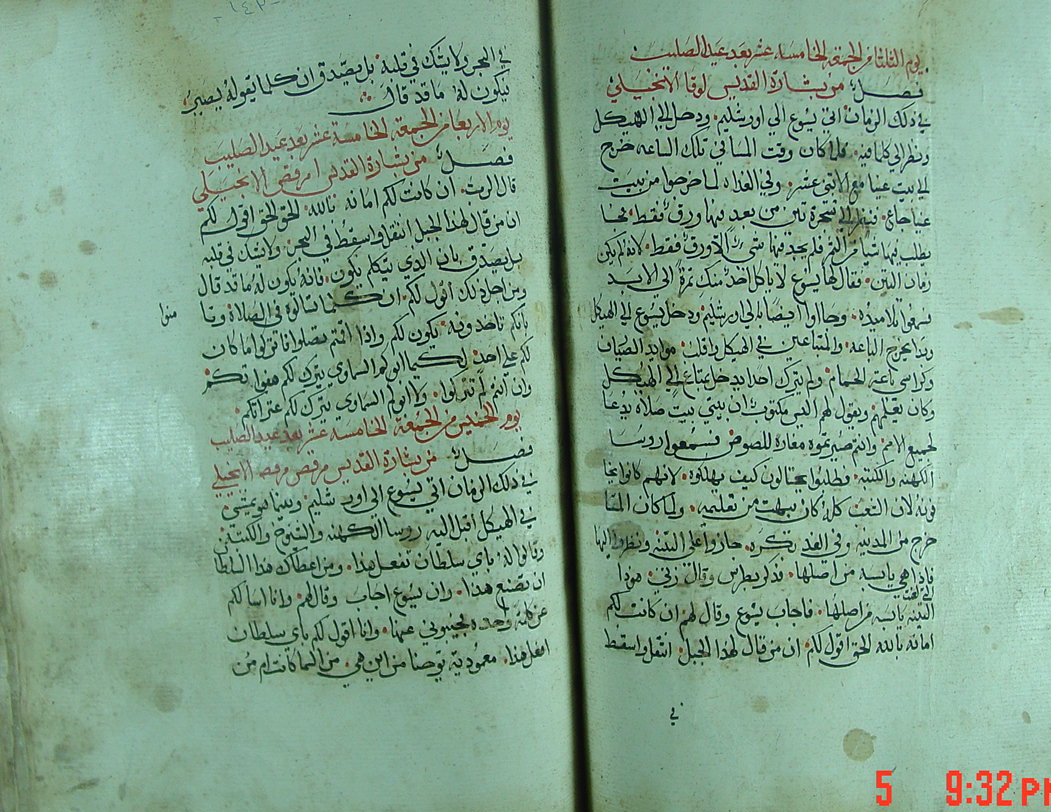 يوم الثلثا من الجمعة الخامسة عشر بعد عيد الصليب
فصل من بشارة القديس لوقا الانجيلي
في ذلك الزمان اتي يسوع الي اورشليم ودخل الي الهيكل
ونظر الي كلما فيه فلما كان وقت المسا في تلك الساعه خرج
الي بيت عنيا مع الاثني عشر وفي الغداه لما خرجوا من بيت
عنيا جاع فنظر الي شجرة تين من بعد فيها ورق فقط فجا
يطلب فيها شيا من الثمر فلم يجد فيها شي الا ورق فقط لانه لم يكن
زمان التين فقال لها يسوع لا ياكل احد منك ثمرة الي الابد
فسمعوا تلاميذه وجاوا ايضا الي اورشليم ودخل يسوع الي الهيكل
وبدا يخرج الباعة والمتباعين في الهيكل واقلب موايد الصيارف
وكراسي باعة الحمام ولم يترك احدا يدخل بمتاع الي الهيكل
وكان يعلمهم ويقول لهم اليس مكتوب ان بيتي بيت صلاة يدعا
لجميع الامم وانتم صيرتموه مغارة للصوص فسمعوا روسا
الكهنه والكتبه وطلبوا يحتالون كيف يهلكوه لانهم كانوا يخا
فونه لان الشعب كله كان يبهت من تعليمه ولما كان المسا
خرج من المدينه وفي الغد بكره جازوا علي التينه ونظروا اليها
فاذا هي يابسه من اصلها فذكر بطرس وقال ربي هوذا
الي لعنت
التينه يابسه من اصلها فاجاب يسوع وقال لهم ان كانت لكم
امانه بالله الحق اقول لكم ان من قال لهذا الجبل انتقل واسقط
في
في البحر ولا يشك في قلبه بل يصدق ان كلما يقوله يصير
يكون له ما قد قال
يوم الاربعا من الجمعة الخامسة عشر بعد عيد الصليب
فصل من بشارة القديس مرقص الانجيلي
قال الرب ان كانت لكم امانه بالله الحق الحق اقول لكم
ان من قال لهذا الجبل انتقل واسقط في البحر ولا يشك في قلبه
بل يصدق بان الذي يتكلم يكون فانه يكون له ما قد قال
ومن اجل ذلك اقول لكم ان كلما تسالوه في الصلاة
بانكم تاخذونه يكون لكم واذا قمتم تصلوا فاتركوا ما كان
لكم علي احد لكيما ابوكم السماوي يترك لكم هفواتكم
وان انتم لم تتركوا ولا ابوكم السماوي يترك لكم عثراتكم
يوم الخميس من الجمعة الخامسة عشر بعد عيد الصليب
فصل من بشارة القديس مرقص الانجيلي
في ذلك الزمان اتي يسوع الي اورشليم وبينما هو يمشي
في الهيكل اقبل اليه روسا الكهنه والشيوخ والكتبة
وقالوا له باي سلطان تفعل هذا ومن اعطاك هذا السلطا
ان تصنع هذا وان يسوع اجاب وقال لهم وانا اسالكم
عن كلمة واحده تجيبوني عنها وانا اقول لكم باي سلطان
افعل هذا معمودية يوحنا من اين هي من السما كانت ام من
5 9:32 PM